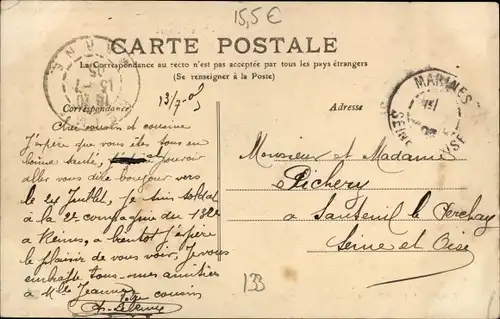 15,5 €
CARTE POSTALE
La Correspondance au recto n'est pas acceptée par tous les pays étrangers
(Se renseigner à la Poste)
Correspondance
13/7-05
Adresse
MARINES
SEINE
OISE
Cher cousin et cousine
J'espère que vous êtes tous en
bonne santé, pouvoir
aller vous dire bonjour vers
le 24 Juillet, Je suis soldat
à la 2e compagnie du 132e
à Reims, a bientot j'espère
le plaisir de vous voir, Je vous
embrasse tous mes amitiés
à Mlle Jeanne
votre cousin
Monsieur et Madame
Pichery
a Santeuil le Perchay
Seine et Oise
133